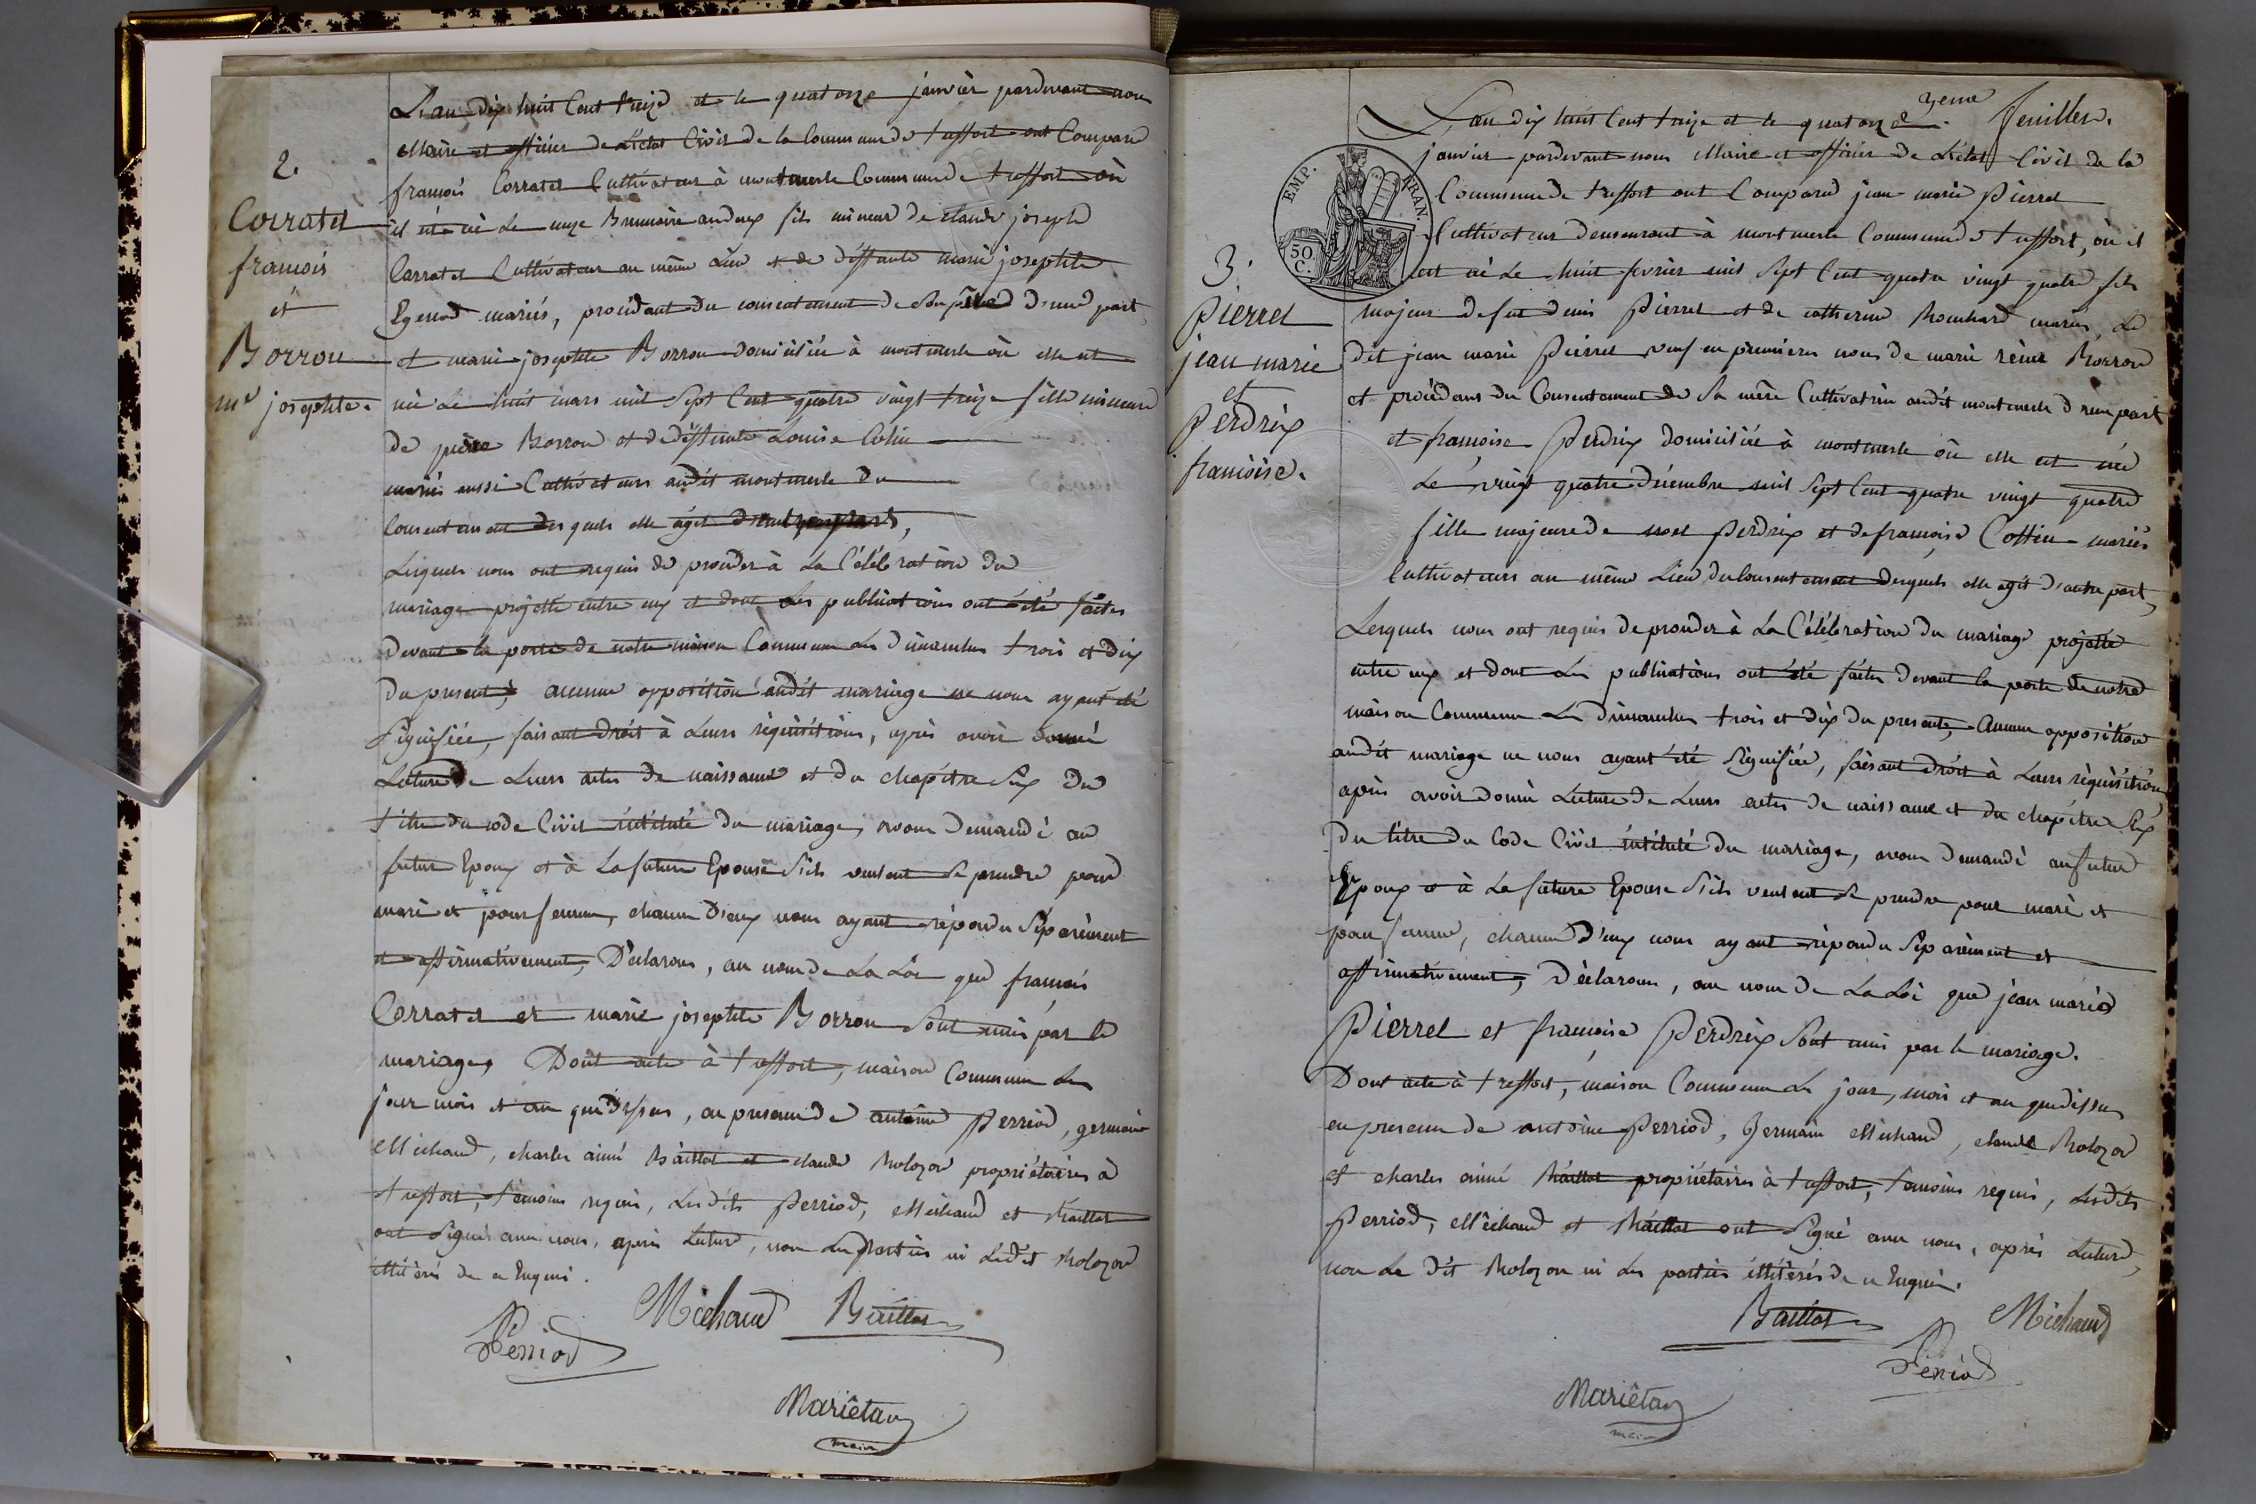 2.
Corratet
francois
et
Borron
me josephte.
L'an dix huit Cent treize et le quatorze janvier pardevant nous
Maire et officier de L'état Civil de la Commune de treffort ont Comparu
francois Corratet Cultivateur à montmerle Commune de treffort où
il est né le onze Brumaire an deux fils mineur de claude joseph
Corratet Cultivateur au même Lieu et de déffunte marie josephte
mariés, procédant du consentement de Son père d'une part,
et marie josephte Borron domiciliée à montmerle où elle est
née le huit mars mil Sept Cent quatre vingt treize fille mineure
de pierre Borron et de déffunte Louise Colin
mariés aussi Cultivateurs audit montmerle du
Consentement desquels elle agit d'autre part,
Lesquels nous ont requis de procéder à La Célébration du
mariage projetté entre eux et dont Les publications ont été faites
devant la porte de notre maison Commune Les dimanches trois et dix
du présent, aucune opposition audit mariage ne nous ayant été
Signifiée, faisant droit à Leurs réquisitions, après avoir donné
Lecture de Leurs actes de naissance et du chapitre Six du
titre du code Civil intitulé du mariage, avons demandé au
futur Epoux et à La future Epouse S'ils veulent Se prendre pour
mari et pour femme, chacun d'eux nous ayant répondu Séparément
et affirmativement, Déclarons, au nom de La Loi que francois
Corratet et marie josephte Borron Sont unis par le
mariage, Dont acte à treffort, maison Commune Les
jour mois et an que dessus, en présence de antoine Perriod, germain
Michaud, charles aimé Baillat et claude Molozon propriétaires à
treffort, témoins requis, Lesdits Perriod, Michaud et Baillat
ont Signé avec nous, après Lecture, non Les parties ni Ledit Molozon
illitérés de ce Enquis.
Michaud Baillat
Perriod
Mariêtan
maire
3eme feuillet.
3.
Pierret
jean marie
et
Perdrix
francoise.
EMP. FRAN.
50 C.
L'an dix huit Cent treize et le quatorze
janvier pardevant nous Maire et officier de L'état Civil de la
Commune de treffort ont Comparu jean marie Pierret
Cultivateur demeurant à montmerle Commune de treffort, où il
est né le huit fevrier mil Sept Cent quatre vingt quatre fils
majeur de feu denis Pierret et de catherine mariés, Le
dit jean marie Pierret veuf en premières noces de marie reine Borron
et procédant du Consentement de Sa mère Cultivatrice audit montmerle d'une part
et francoise Perdrix domiciliée à montmerle où elle est née
Le vingt quatre décembre mil Sept Cent quatre vingt quatre
fille majeure de noel Perdrix et de francoise Cottin mariés
Cultivateurs au même Lieu du Consentement desquels elle agit d'autre part,
Lesquels nous ont requis de procéder à La Célébration du mariage projetté
entre eux et dont Les publications ont été faites devant la porte de notre
maison Commune Les dimanches trois et dix du présent, aucune opposition
audit mariage ne nous ayant été Signifiée, faisant droit à Leurs réquisitions
après avoir donné Lecture de Leurs actes de naissance et du chapitre Six
du titre du Code Civil intitulé du mariage, avons demandé au futur
Epoux et à La future Epouse S'ils veulent Se prendre pour mari et
pour femme, chacun d'eux nous ayant répondu Séparément et
affirmativement, Déclarons, au nom de La Loi que jean marie
Pierret et francoise Perdrix Sont unis par le mariage.
Dont acte à treffort, maison Commune Les jour, mois et an que dessus
en présence de antoine Perriod, Germain Michaud, claude Molozon
et charles aimé Baillat propriétaires à treffort, témoins requis, Lesdits
Perriod, Michaud et Baillat ont Signé avec nous, après Lecture,
non Le dit Molozon ni Les parties illitérés de ce Enquis.
Baillat Michaud
Perriod
Mariêtan
maire